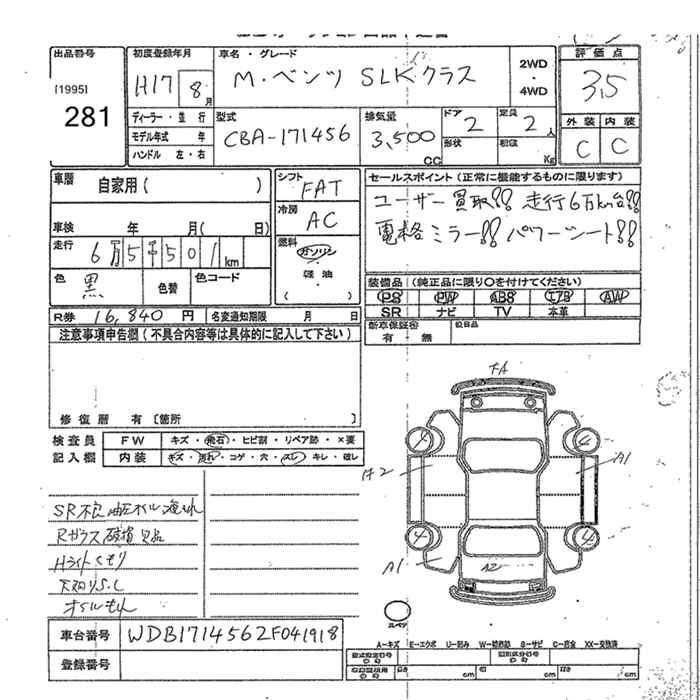 出品番号
[1995]
281
初度登録年月
H17 8月
車名・グレード
M・ベンツ SLKクラス
2WD
・
4WD
評価点
3.5
外装 内装
C C
ディーラー・並行
モデル年式 年
ハンドル 左・右
型式
CBA-171456
排気量
3,500 CC
ドア
2
形状
定員
2人
積載
Kg
車歴
自家用( )
車検 年 月( 日)
走行
6万5501km
色
黒
色替
色コード
シフト
FAT
冷房
AC
燃料
ガソリン
軽油
( )
セールスポイント(正常に機能するものに限ります)
ユーザー買取!! 走行6万km台!!
電格ミラー!! パワーシート!!
装備品(純正品に限り○を付けてください)
PS PW ABS エアB AW
SR ナビ TV 本革
新車保証書
有・無
R券 16,840円
名変通知期限 月 日
注意事項申告欄(不具合内容等は具体的に記入して下さい)
修復歴 有[箇所 ]
検査員
記入欄
FW キズ・飛石・ヒビ割・リペア跡・×要
内装 キズ・汚れ・コゲ・穴・スレ・キレ・破レ
SR不良
Rガラス破損欠品
Hライトくもり
オイルもれ
車台番号 WDB1714562F041918
登録番号
A1
A2
A1
A2
4
4
4
スペア
A-キズ E-エクボ U-凹み W-補修跡 S-サビ C-腐食 XX-交換済
cm
cm
cm